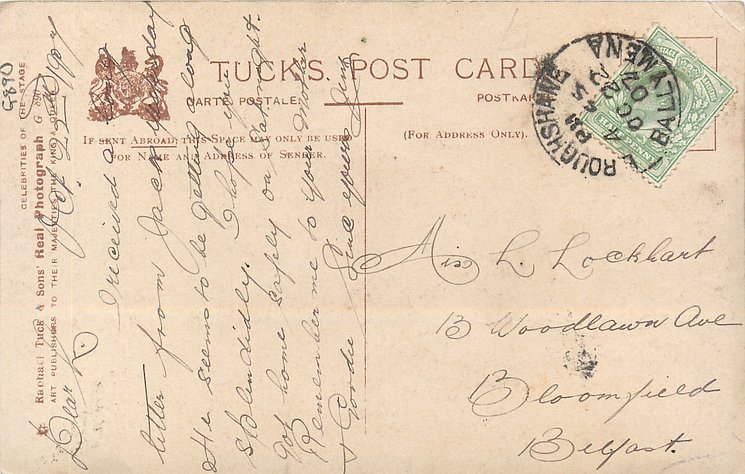 TUCK'S POST CARD
CARTE POSTALE
POSTKAR
IF SENT ABROAD, THIS SPACE MAY ONLY BE USED
FOR NAME AND ADDRESS OF SENDER.
(FOR ADDRESS ONLY).
BROUGHSHANE
BALLYMENA
4 45 PM
OC 2
07
POSTAGE
HALFPENNY
G890
CELEBRITIES OF THE STAGE
Raphael Tuck & Sons' Real Photograph G 890
ART PUBLISHERS TO THEIR MAJESTIES THE KING &
Dear L.
I received a long
letter from Jack yesterday
He seems to be getting along
splendidly. I hope you
got home safely on Sat night.
Remember me to your Mother
& Gordie Sinc yours Jim
Miss L. Lockhart
13 Woodlawn Ave
Bloomfield
Belfast.